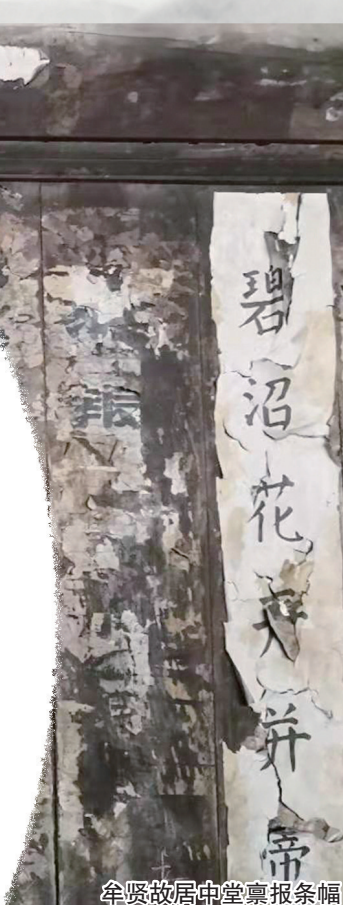 碧沼花开并蒂
报
牟贤故居中堂禀报条幅